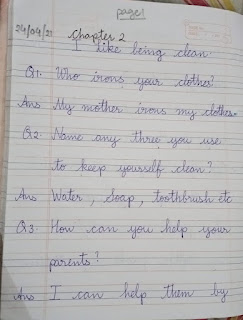 page1
24/04/21 Chapter 2
I like being clean.
Q1. Who irons your clothes?
Ans My mother irons my clothes.
Q2. Name any three you use
to keep yourself clean?
Ans Water, Soap, toothbrush etc
Q3. How can you help your
parents?
Ans I can help them by